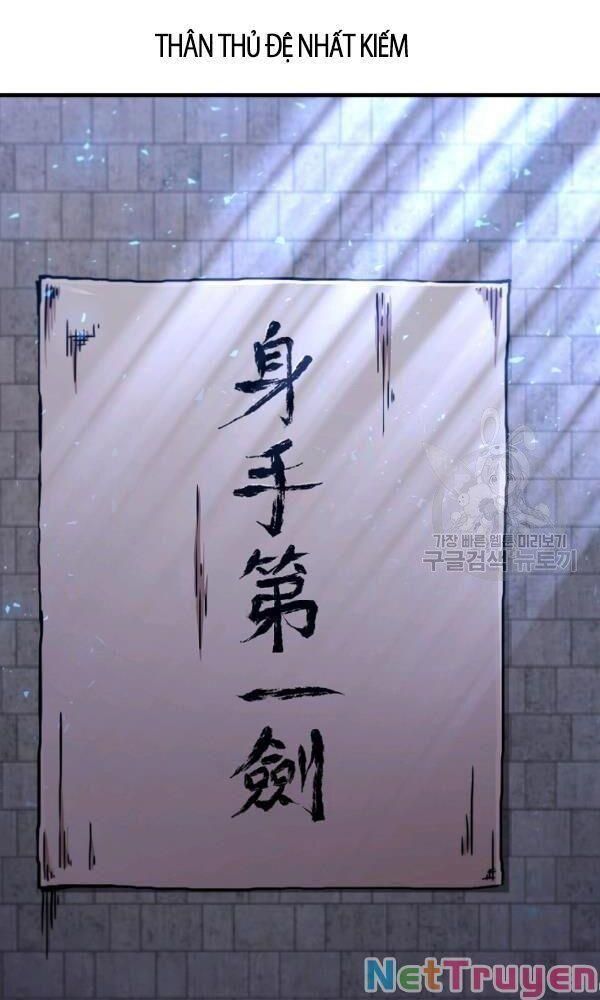 THÂN THỦ ĐỆ NHẤT KIẾM
身手第一劍
가장 빠른 웹툰 미리보기
구글검색 뉴토끼
NetTruyen